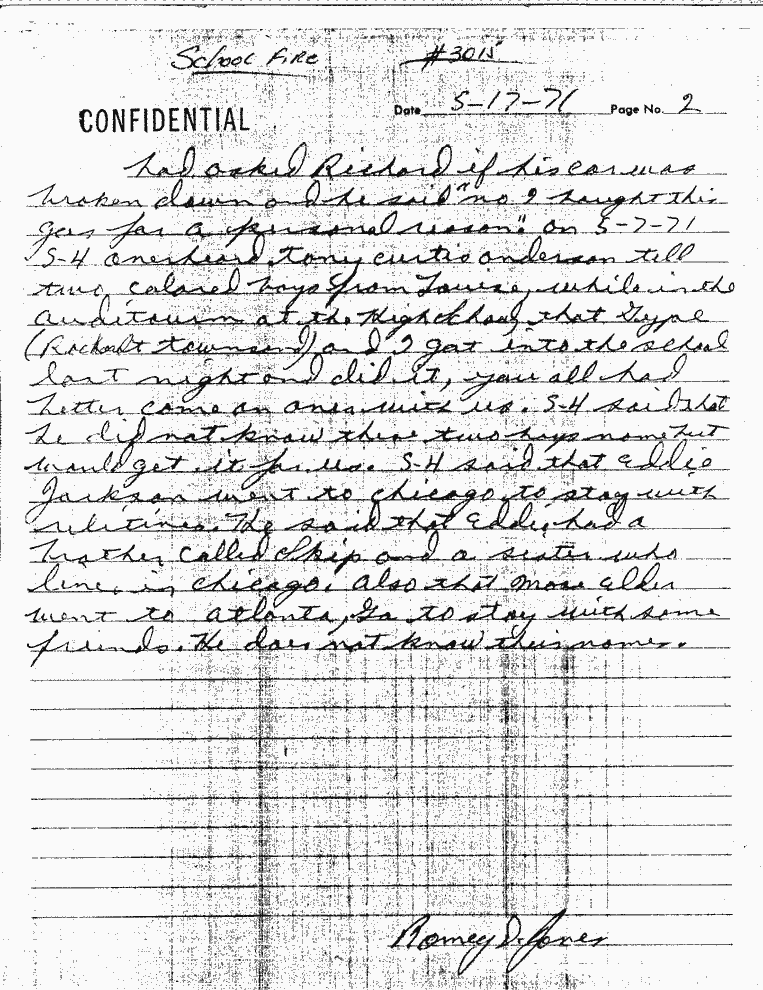 School Fire #3015
CONFIDENTIAL Date 5-17-71 Page No. 2
had asked Richard if his car was
broken down and he said "no I bought this
gas for a personal reason". on 5-7-71
S-4 overheard tony curtis anderson tell
two colored boys from Louise, while in the
auditourm at the High School, that Gype
(Rockelt townsend) and I got into the school
last night and did it, you all had
better come on ones with us. S-4 said that
he did not know these two boys name but
would get it for us. S-4 said that Eddie
Jackson went to chicago, to stay with
relitives. He said that Eddie, had a
brother called Skip and a sister who
lives in chicago. Also that Mose Elder
went to atlanta, Ga to stay with some
friends. He does not know their names.
Romey D. Jones